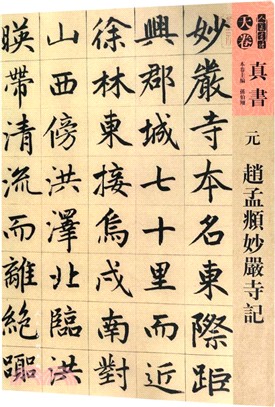 大卷
本卷主編
真書
元 趙孟頫妙嚴寺記
妙嚴寺本名東際距
興郡城七十里而近
徐林東接烏戍南對
山西傍洪澤北臨洪
暎帶清流而離絕躢